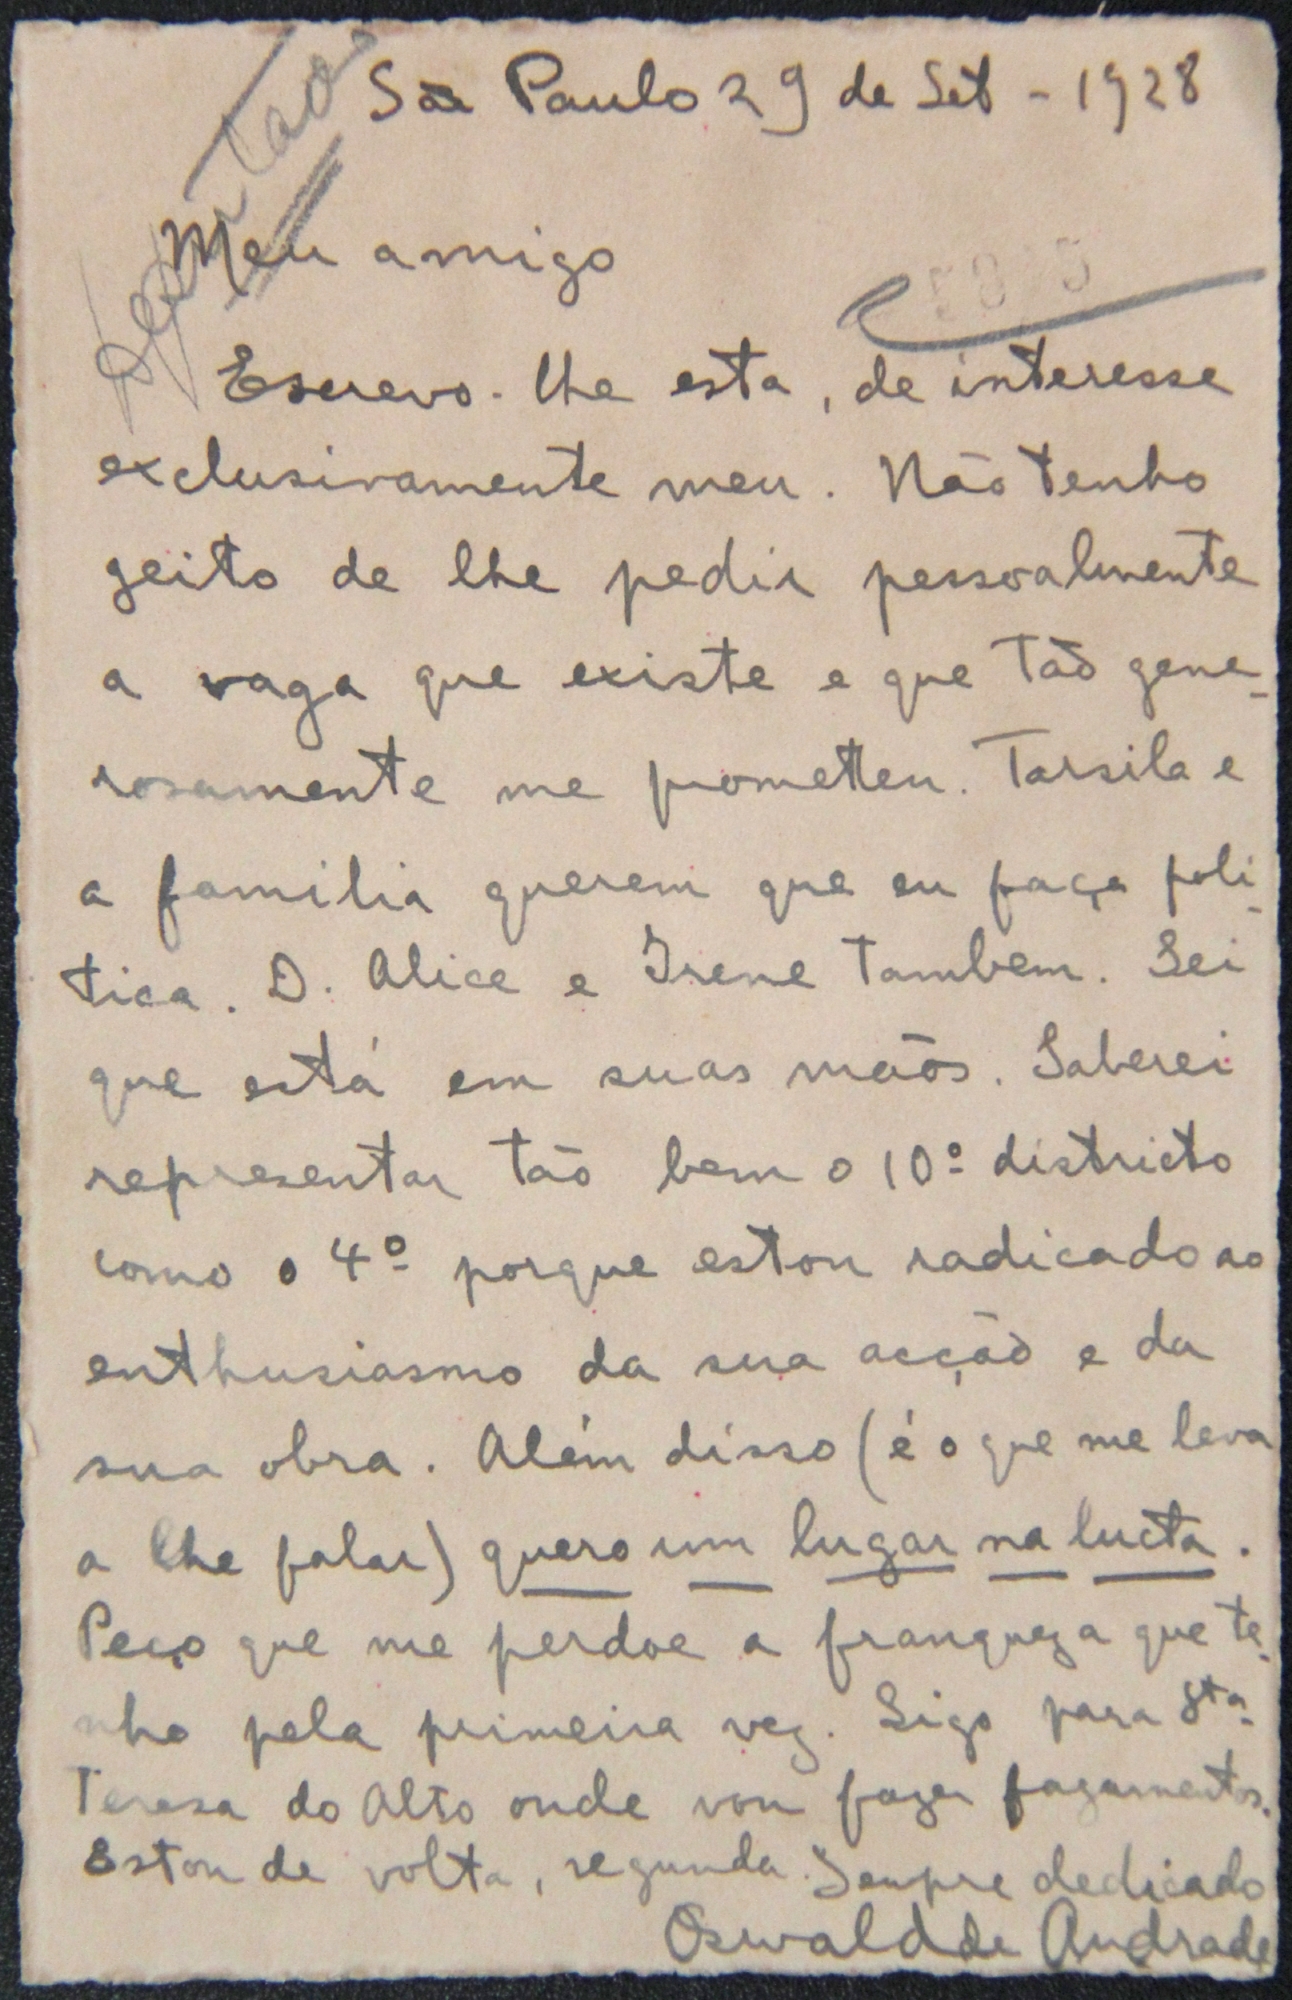 São Paulo 29 de Set - 1928
Meu amigo
Escrevo-lhe esta, de interesse
exclusivamente meu. Não tenho
geito de lhe pedir pessoalmente
a vaga que existe e que tão gene-
rosamente me prometteu. Tarsila e
a familia querem que eu faça poli-
tica. D. Alice e Irene tambem. Sei
que está em suas mãos. Saberei
representar tão bem o 10º districto
como o 4º porque estou radicado ao
enthusiasmo da sua acção e da
sua obra. Além disso (é o que me leva
a lhe falar) quero um lugar na lucta.
Peço que me perdoe a franqueza que te-
nho pela primeira vez. Sigo para Sta
Teresa do Alto onde vou fazer pagamentos.
Estou de volta, segunda. Sempre dedicado
Oswald de Andrade